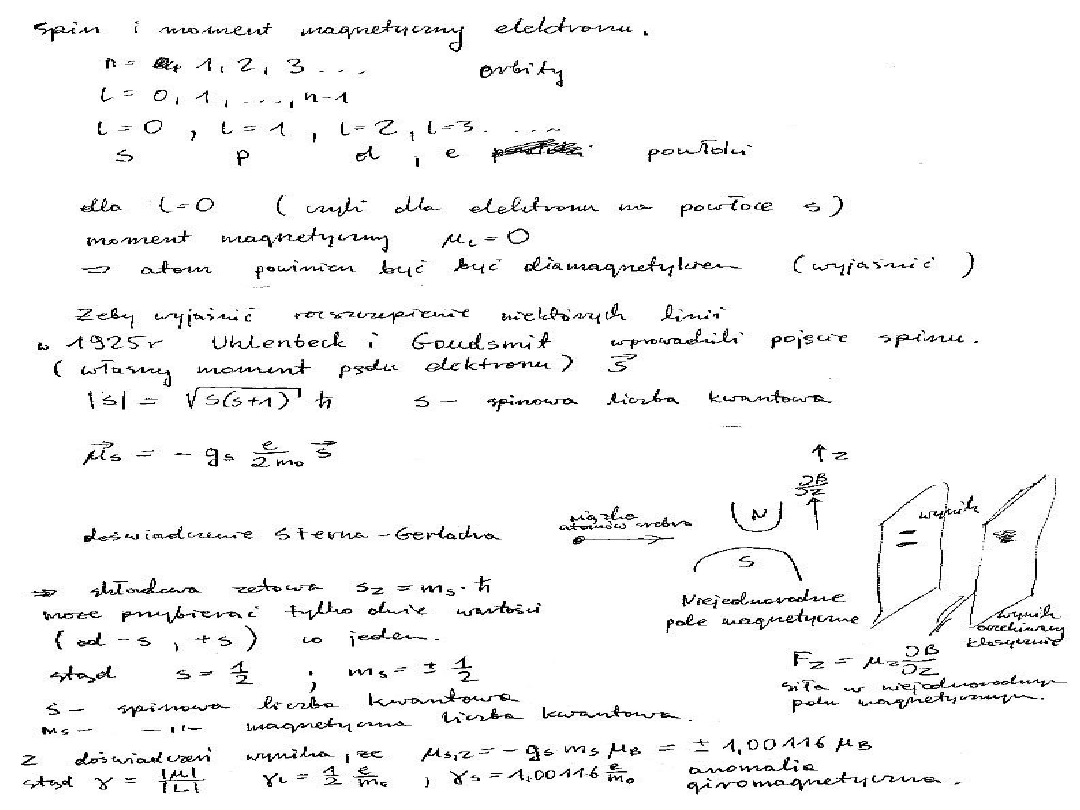 Spin i moment magnetyczny elektronu.
n = 1, 2, 3 ... orbity
l = 0, 1, ..., n-1
l=0 , l=1 , l=2, l=3 ....
s p d , e powłoki
dla l=0 ( czyli dla elektronu na powłoce s )
moment magnetyczny μl = 0
⇒ atom powinien być być diamagnetykiem (wyjaśnić )
Żeby wyjaśnić rozszczepienie niektórych linii
w 1925r Uhlenbeck i Goudsmit wprowadzili pojęcie spinu.
( własny moment pędu elektronu ) s⃗
|s| = √s(s+1) ħ s - spinowa liczba kwantowa
μ⃗s = - gs e/2m₀ s⃗
↑ z
∂B/∂z ↑
N
S
wiązka
atomów srebra
wynik
doświadczenie Sterna-Gerlacha
Niejednorodne
pole magnetyczne
wynik
oczekiwany
klasycznie
⇒ składowa zetowa sz = ms · ħ
może przybierać tylko dwie wartości
( od -s , +s ) co jeden.
stąd s = 1/2 ; ms = ± 1/2
Fz = μz ∂B/∂z
siła w niejednorodnym
polu magnetycznym.
s - spinowa liczba kwantowa
ms - -"- magnetyczna liczba kwantowa.
Z doświadczeń wynika, że μs,z = - gs ms μB = ± 1,00116 μB
stąd γ = |μ|/|L| γl = 1/2 e/m₀ , γs = 1,00116 e/m₀ anomalia
giromagnetyczna.